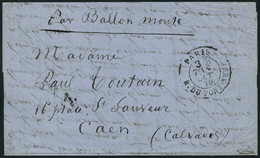 Par Ballon monté
Madame
Paul Toutain
16 place St Sauveur
Caen
(Calvados)
PARIS